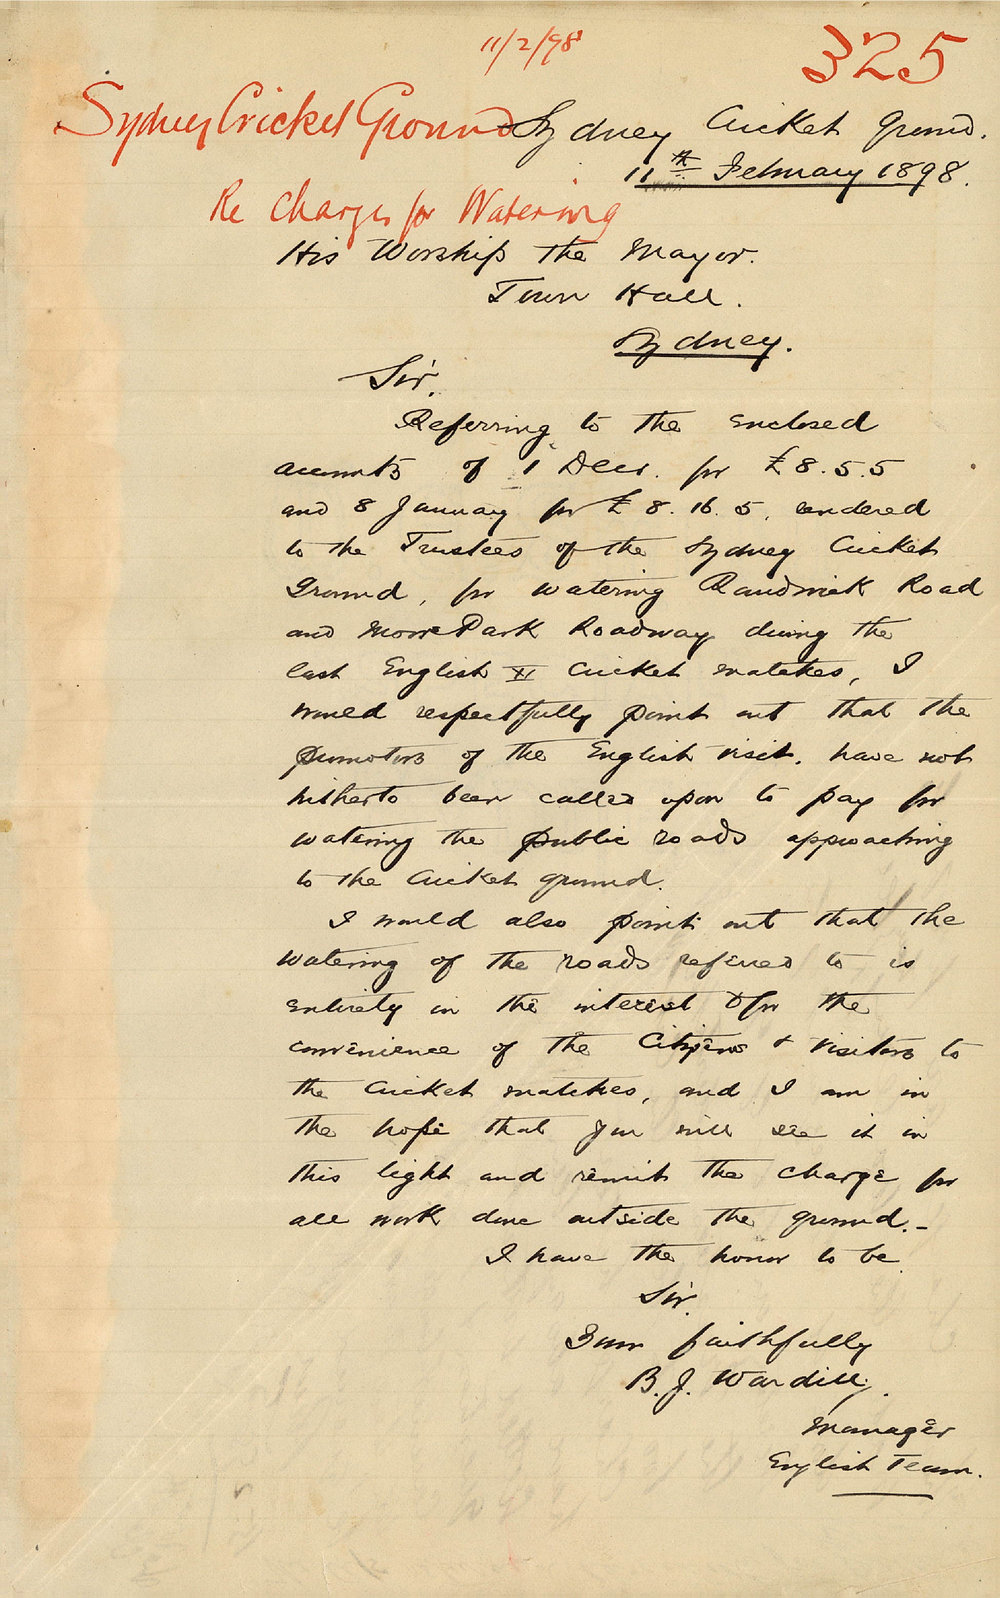 11/2/98
325
Sydney Cricket Ground
Sydney Cricket Ground.
11th February 1898.
Re Charges for Watering
His Worship the Mayor.
Town Hall.
Sydney.
Sir,
Referring to the enclosed
accounts of 1 Decr. for £8.5.5
and 8 January for £8.16.5, rendered
to the Trustees of the Sydney Cricket
Ground, for watering Randwick Road
and Moore Park Roadway during the
last English XI Cricket matches, I
would respectfully point out that the
promotors of the English visit, have not
hitherto been called upon to pay for
watering the public roads approaching
to the Cricket ground.
I would also point out that the
watering of the roads referred to is
entirely in the interest & for the
convenience of the Citizens & visitors to
the Cricket matches, and I am in
the hope that you will see it in
this light and remit the charge for
all work done outside the ground.-
I have the honor to be
Sir,
Your faithfully
B. J. Wardill,
Manager
English Team.